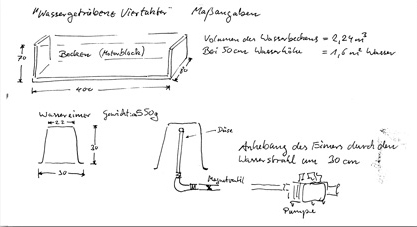 "Wassergetriebener Viertakter" Maßangaben
Volumen des Wasserbeckens = 2,24 m³
Bei 50cm Wasserhöhe = 1,6 m³ Wasser
Becken (Motorblock)
70
80
400
Wassereimer Gewicht: 550g
22
30
30
Düse
Magnetventil
Anhebung des Eimers durch den
Wasserstrahl um 30 cm
Pumpe